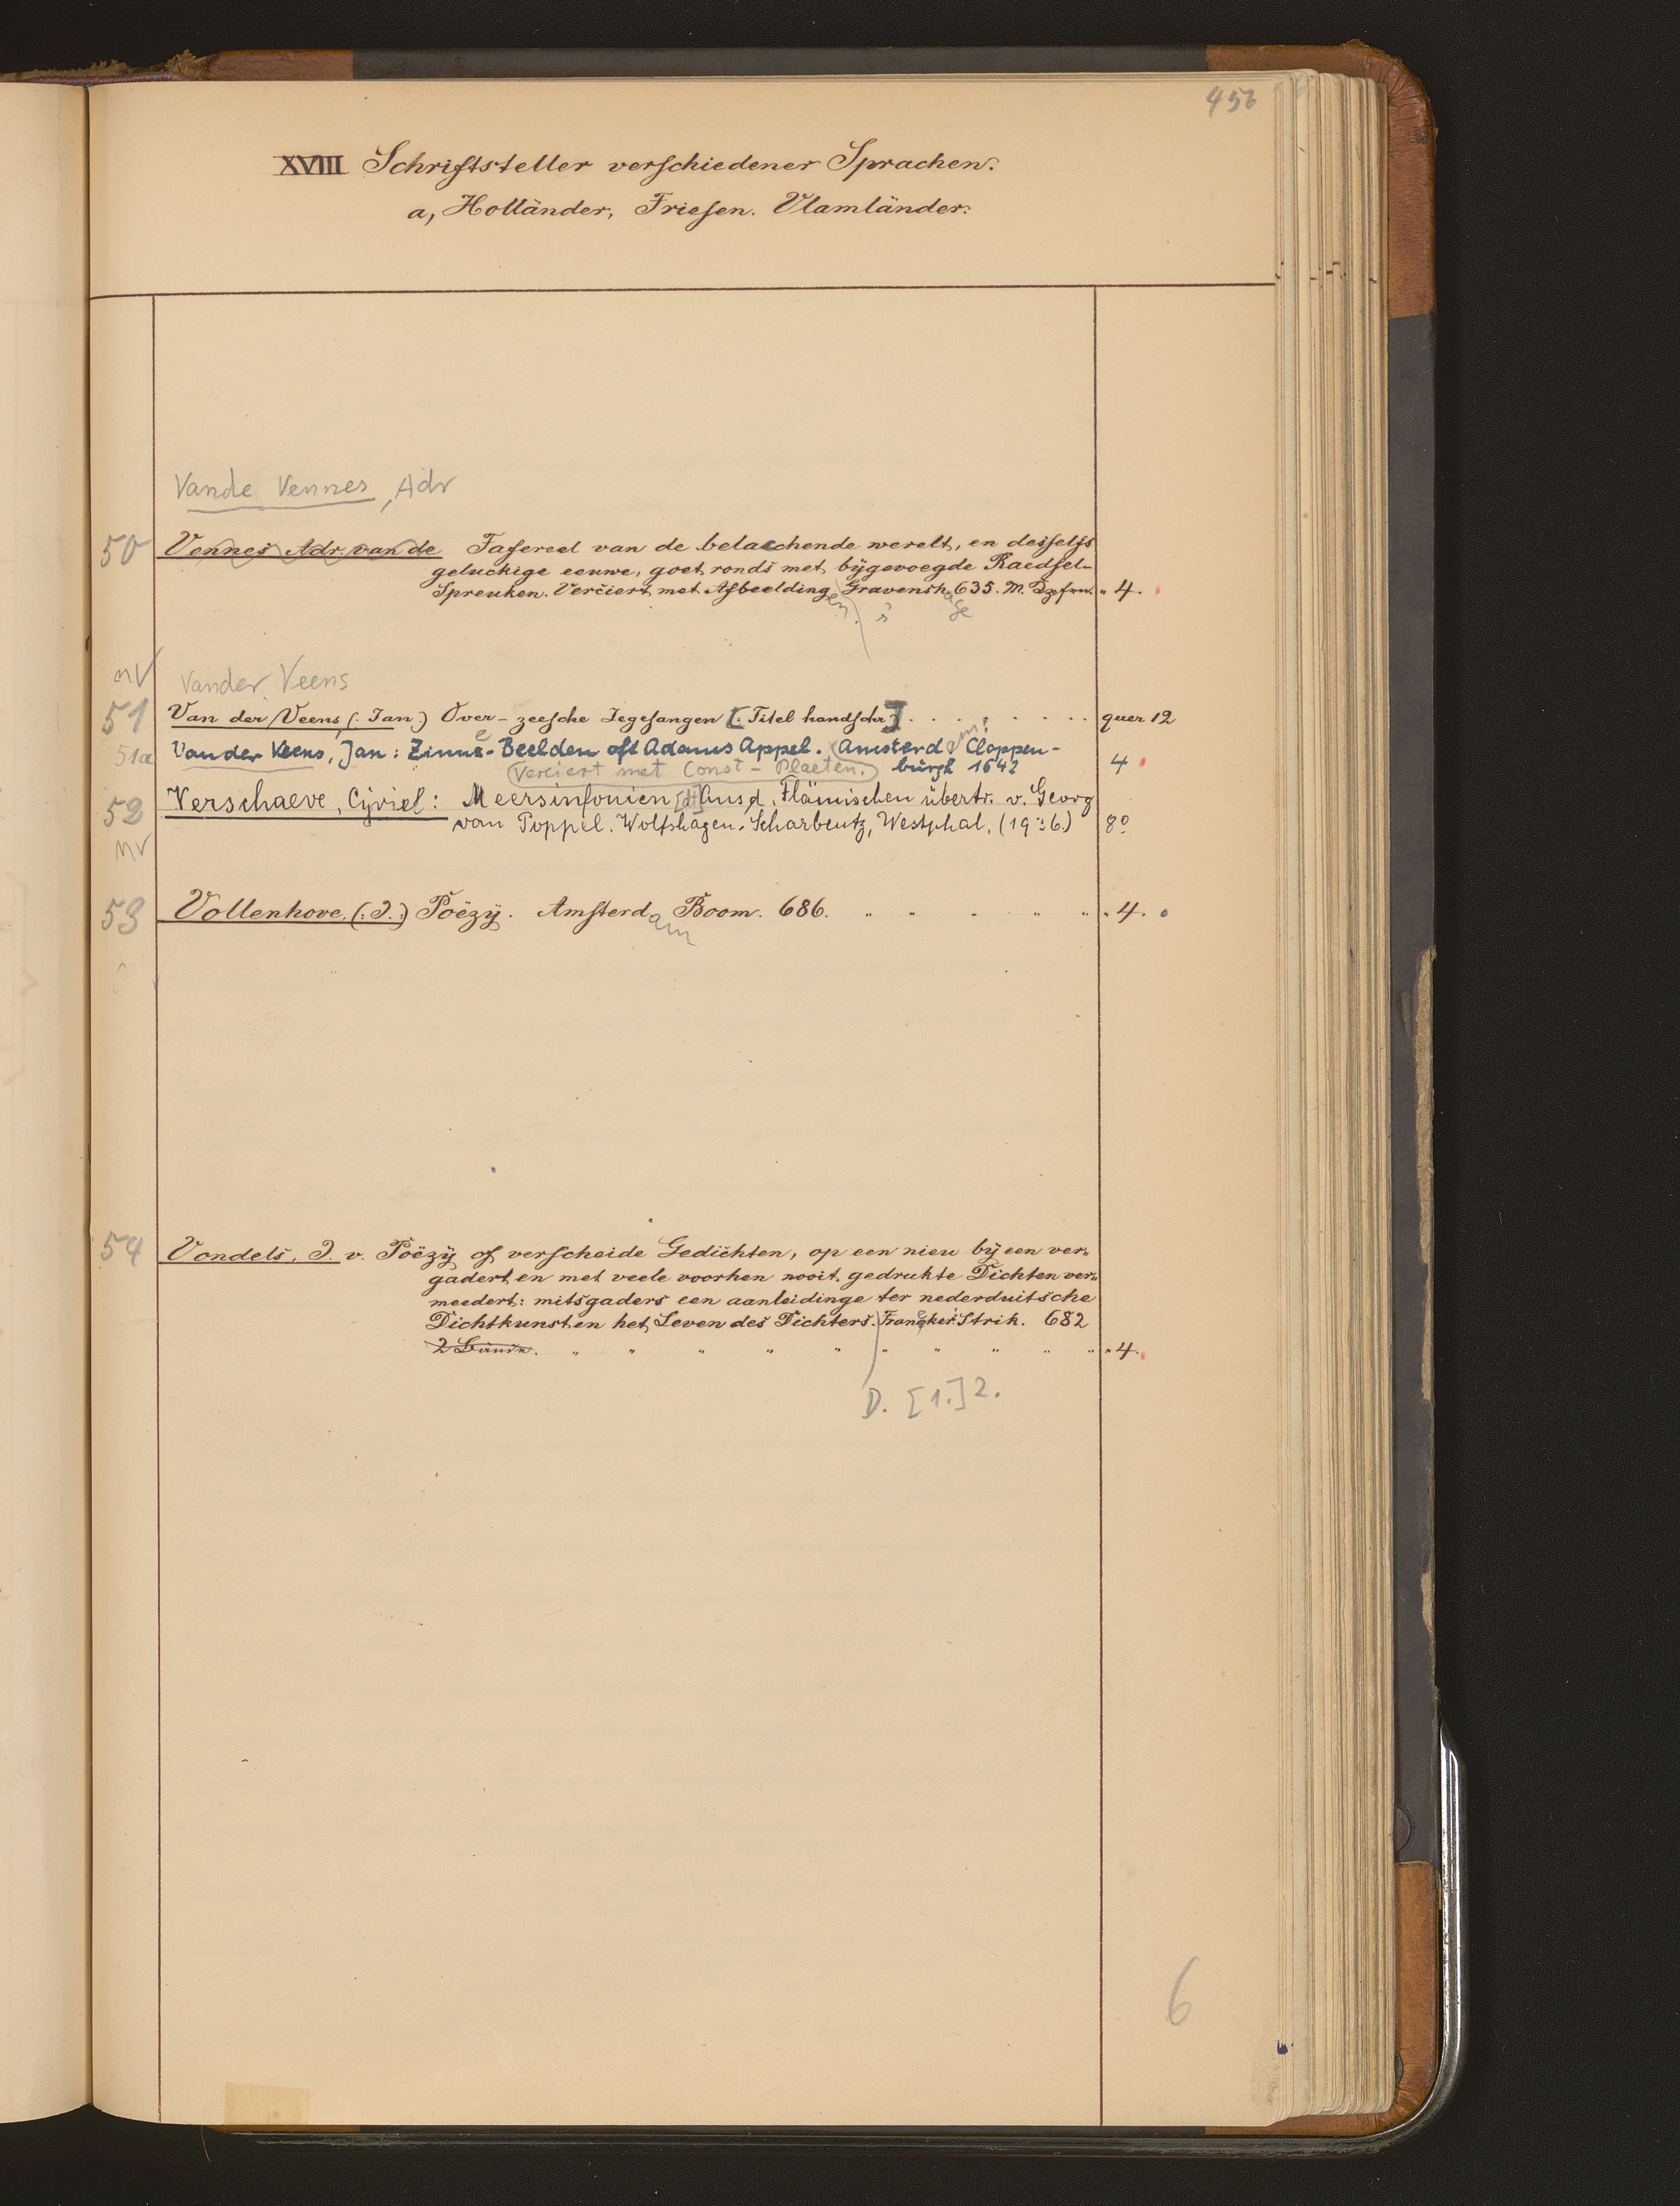 456
XVIII Schriftsteller verschiedener Sprachen.
a, Holländer, Friesen. Vlamländer.
Vande Vennes, Adr
50 Vennes Adr. van de Tafereel van de belacchende werelt, en desselfs
geluckige eeuwe, goet ronds met bijgevoegde Raedsel-
Spreuken. Verciert met Afbeeldingen. s' Gravenshage 635. M. „ 4.
nv Vander Veens
51 Van der Veens (: Jan:) Over-zeesche Zegesangen [: Titel handschr:] quer 12
51a Vander Veens, Jan: Zinne-Beelden oft Adams Appel. Amsterdam: Cloppen-
Verciert met Const-Plaeten. burgh 1642 4
52 Verschaeve, Cyriel: Meersinfonien [dt] Aus d. Flämischen übertr. v. Georg
van Poppel. Wolfshagen-Scharbeutz, Westphal. (1936) 8°
nv
53 Vollenhove, (: J. :) Poëzÿ. Amsterdam Boom. 686. „ 4.
54 Vondels, J. v. Poëzÿ of verscheide Gedichten, op een nieu bÿ een ver„
gadert en met veele voorhen nooit gedrukte Dichten ver„
meedert: mitsgaders een aanleidinge ter nederduitsche
Dichtkunst en het Leven des Dichters. Franeker. Strik. 682
2 Bände. „ 4.
D. [1.] 2.
6